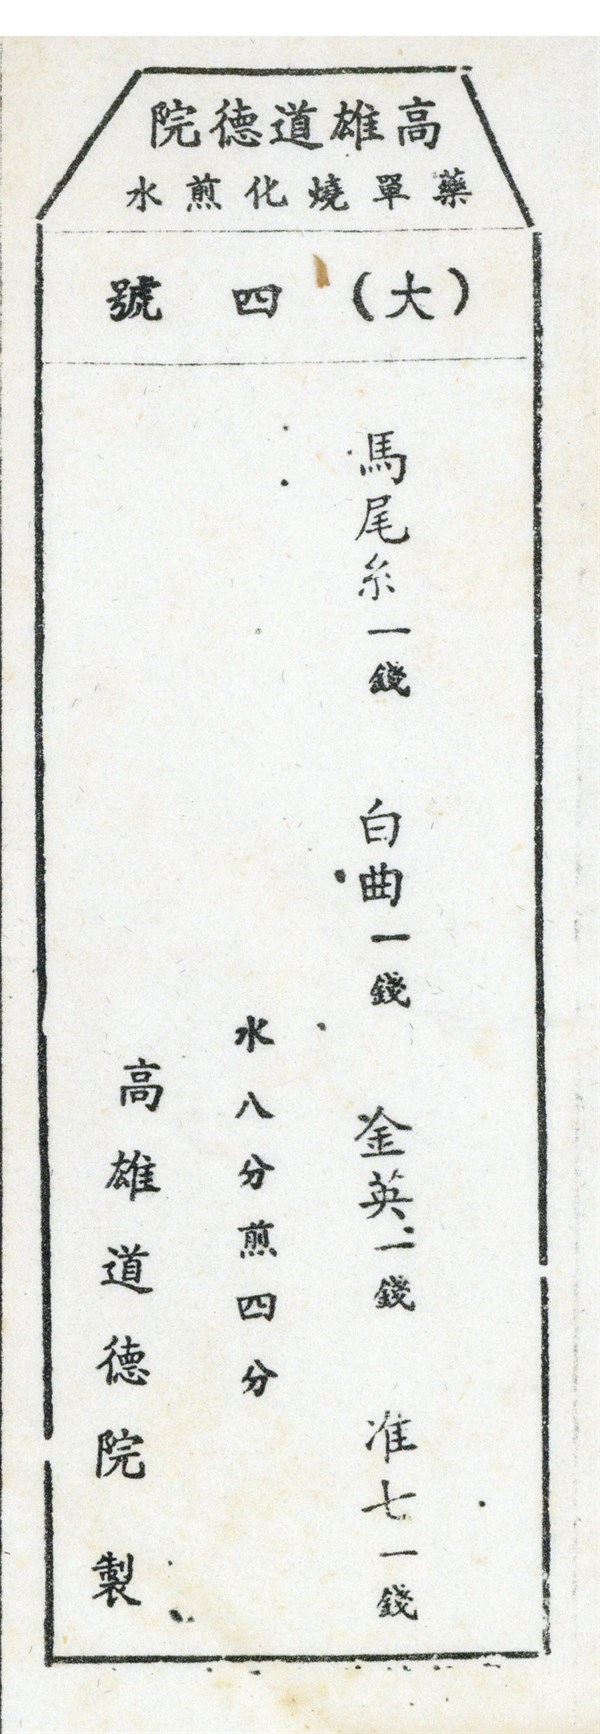 高雄道德院
藥單燒化煎水
(大)四號
馬尾糸一錢 白曲一錢 金英一錢 准七一錢
水八分煎四分
高雄道德院製